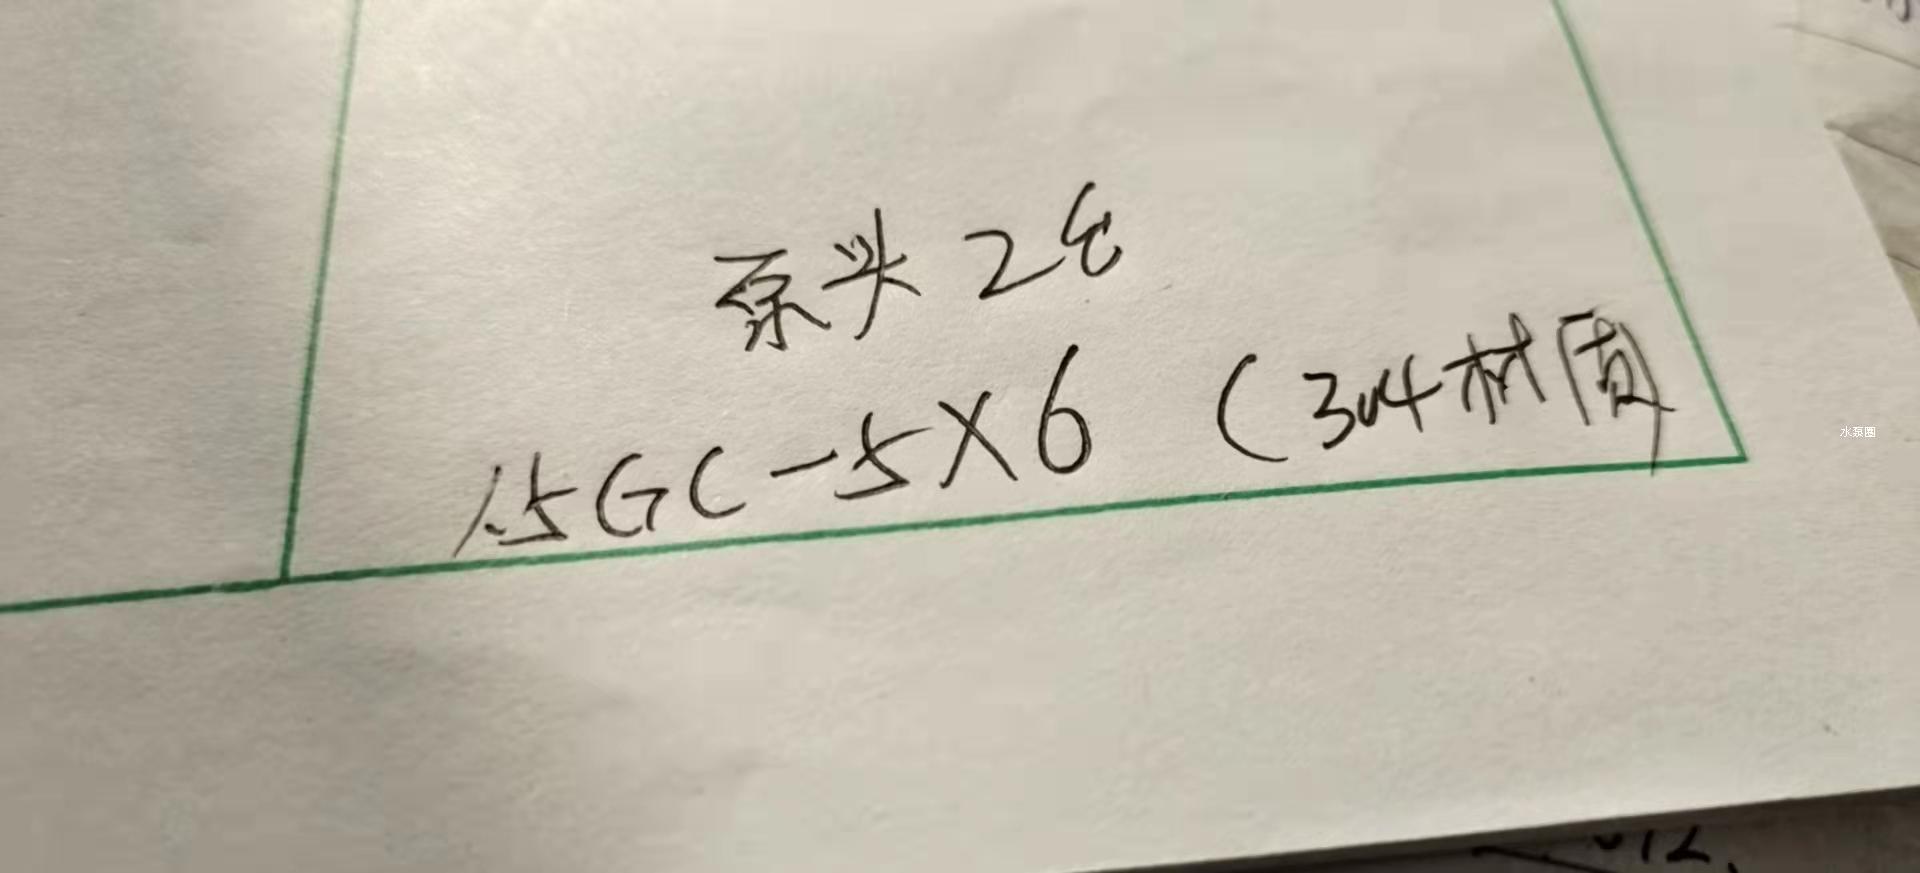 泵头2台
1.5GC-5X6 (304材质
水泵圈